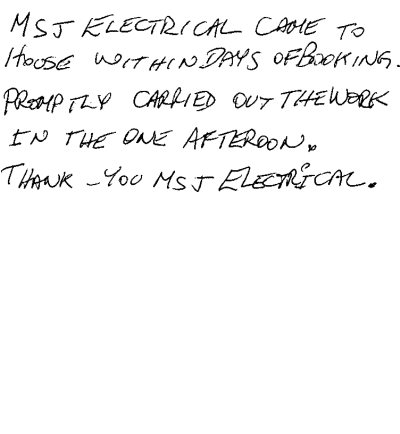 MSJ ELECTRICAL CAME TO
HOUSE WITHIN DAYS OF BOOKING.
PROMPTLY CARRIED OUT THE WORK
IN THE ONE AFTEROON.
THANK-YOU MSJ ELECTRICAL.